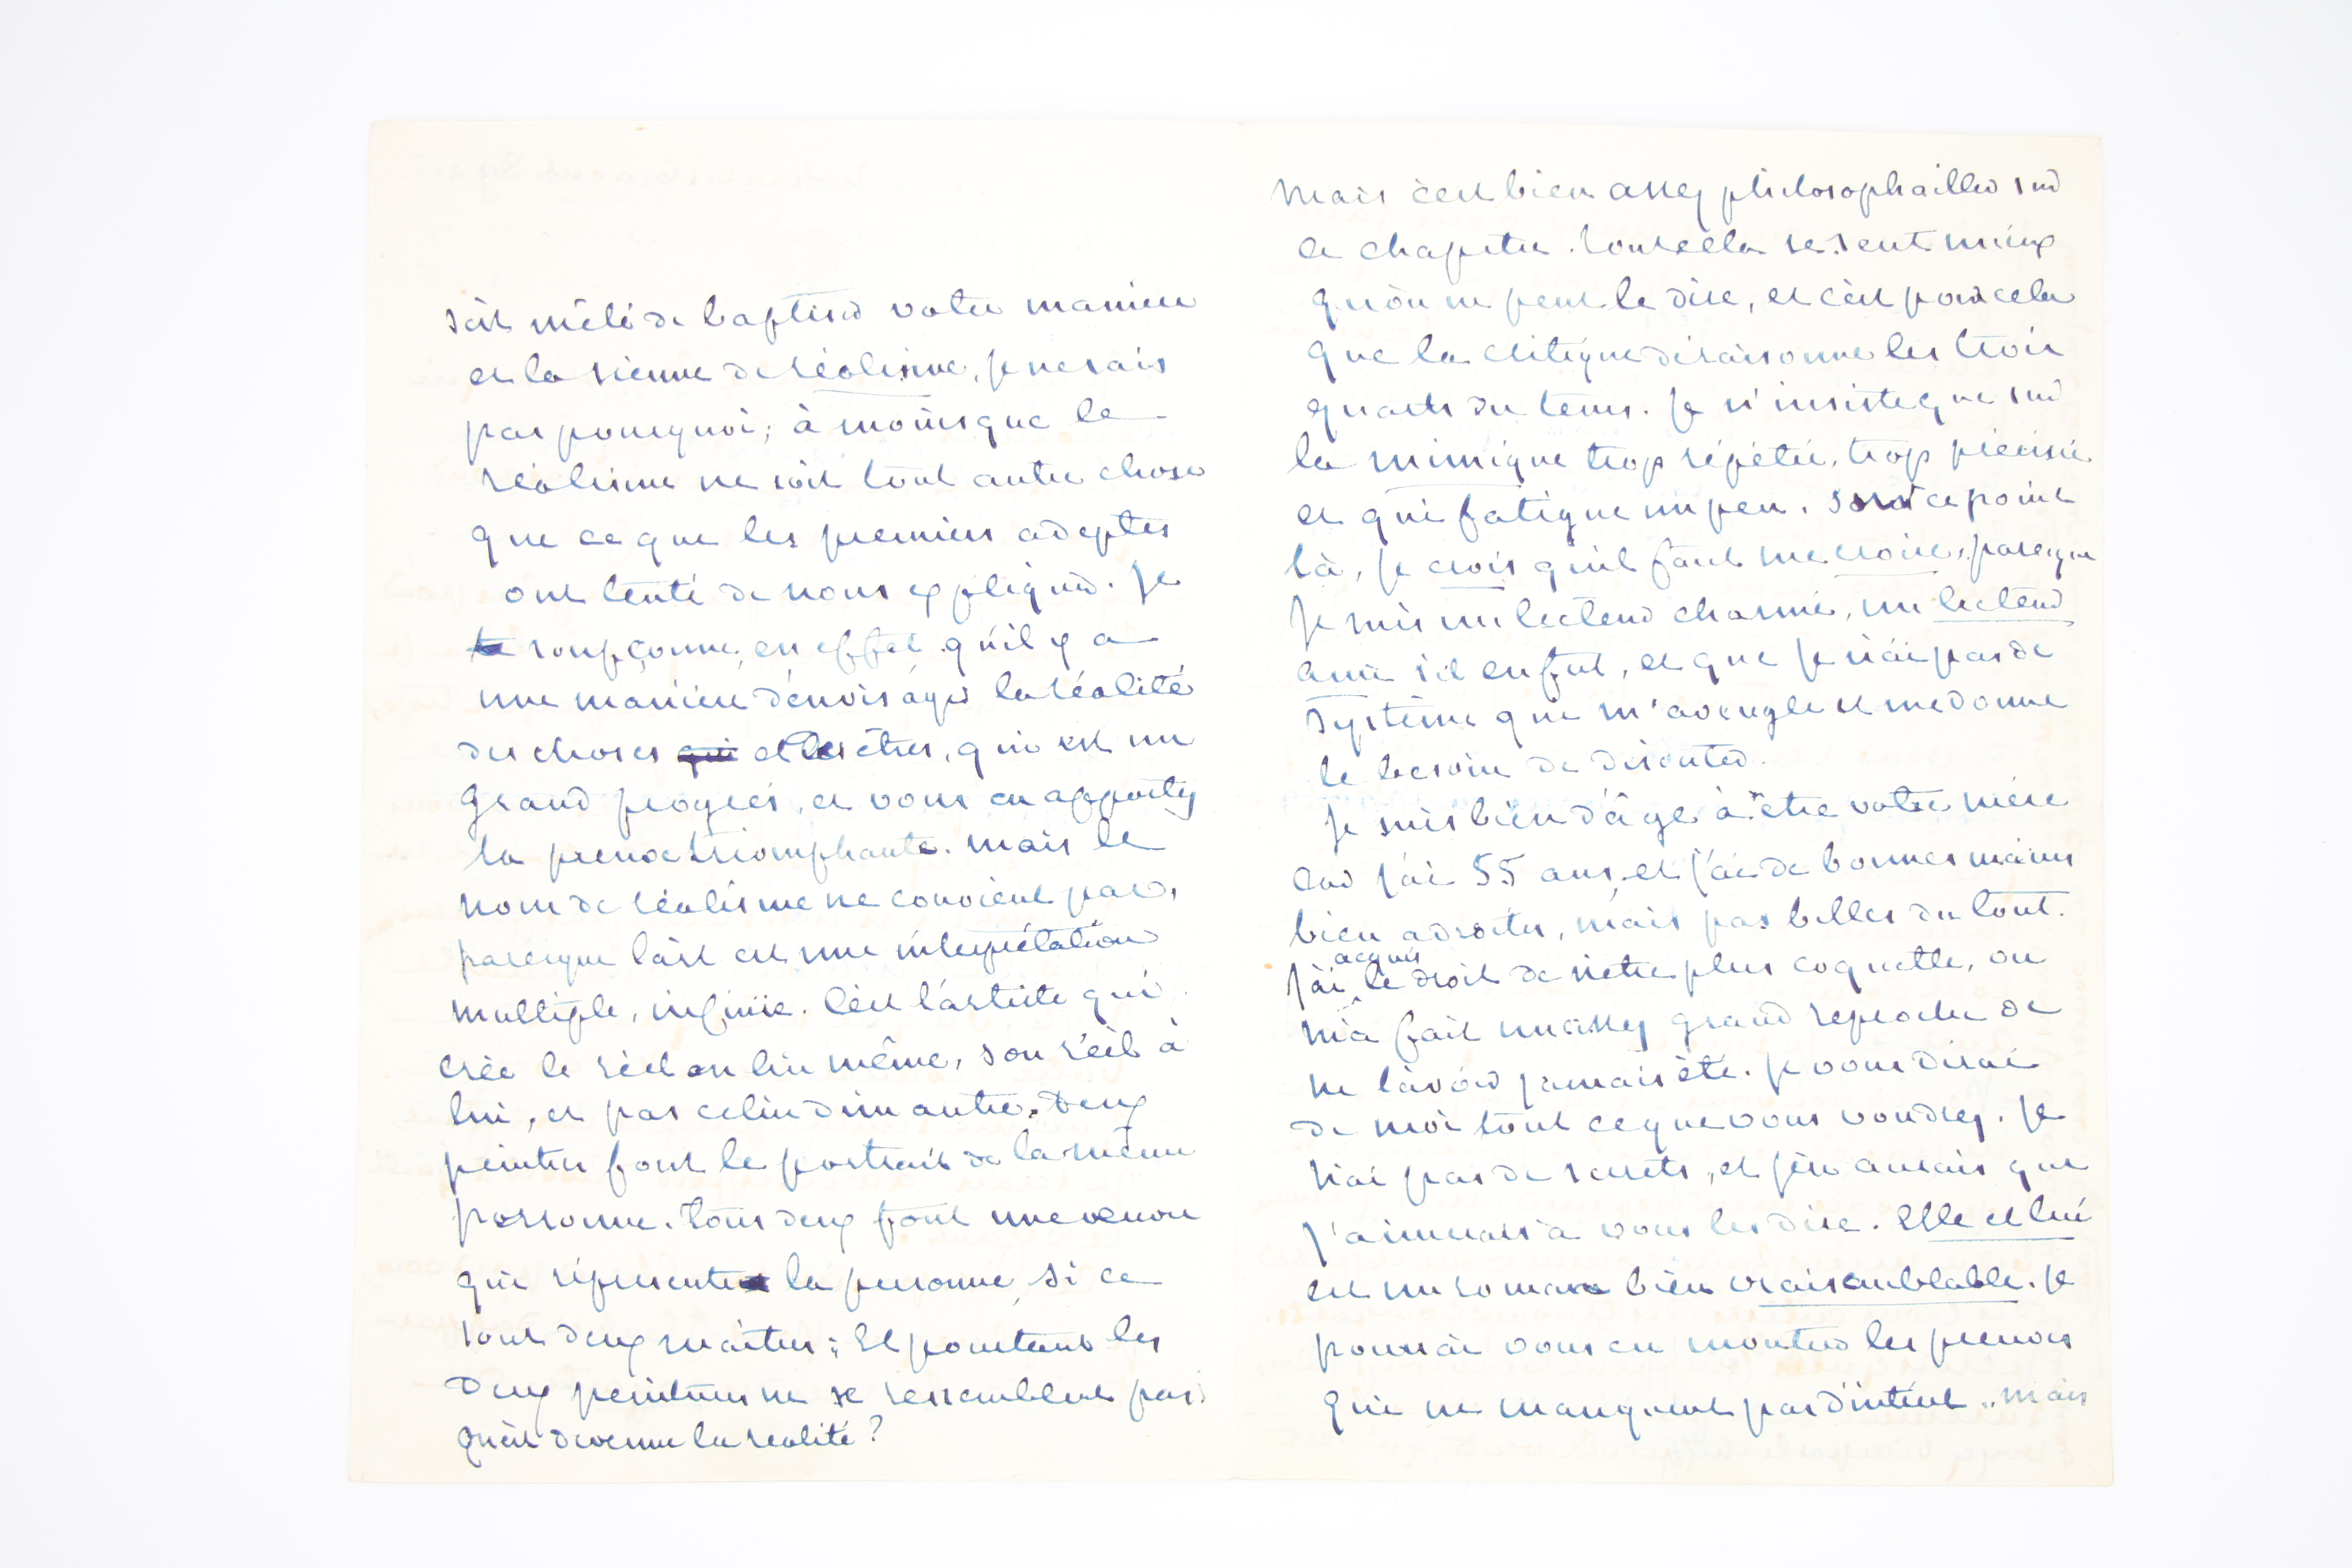 soit mêlé de baptiser votre manière
et la sienne de réalisme. Je ne sais
pas pourquoi ; à moins que le
réalisme ne soit tout autre chose
que ce que les premiers adeptes
ont tenté de nous expliquer. Je
soupçonne, en effet, qu'il y a
une manière d'envisager la réalité
des choses qui et les êtres, qui est un
grand progrès, et vous en apportez
la preuve triomphante. mais le
nom de réalisme ne convient pas,
parceque l'art est une interprétation
multiple, infinie. C'est l'artiste qui
crée le réel en lui même, son réel à
lui, et pas celui d'un autre. Deux
peintres font le portrait de la même
personne. Tous deux font une œuvre
qui représente la personne, si ce
sont deux maîtres ; Et pourtant les
deux peintures ne se ressemblent pas.
Qu'est devenue la réalité ?
Mais c'est bien assez philosophailler sur
ce chapitre. Tout cela se sent mieux
qu'on ne peut le dire, et c'est pour cela
que la critique déraisonne les trois
quarts du tems. Je n'insiste que sur
la mimique trop répétée, trop précisée
et qui fatigue un peu. Sur ce point
là, je crois qu'il faut me croire, parceque
je suis un lecteur charmé, un lecteur
ami s'il en fut, et que je n'ai pas de
système que m'aveugle et me donne
le besoin de disputer.
Je suis bien d'âge à être votre mère
car j'ai 55 ans, et j'ai de bonnes mains
bien adroites, mais pas belles du tout.
J'ai acquis le droit de n'être plus coquette, on
m'a fait un assez grand reproche de
ne l'avoir jamais été. Je vous dirai
de moi tout ce que vous voudrez. Je
n'ai pas de secrets, et j'en aurais que
j'aimerais à vous les dire. Elle et lui
est un roman bien vraisemblable. Je
pourrai vous en montrer les preuves
qui ne manquent pas d'intérêt.. mais